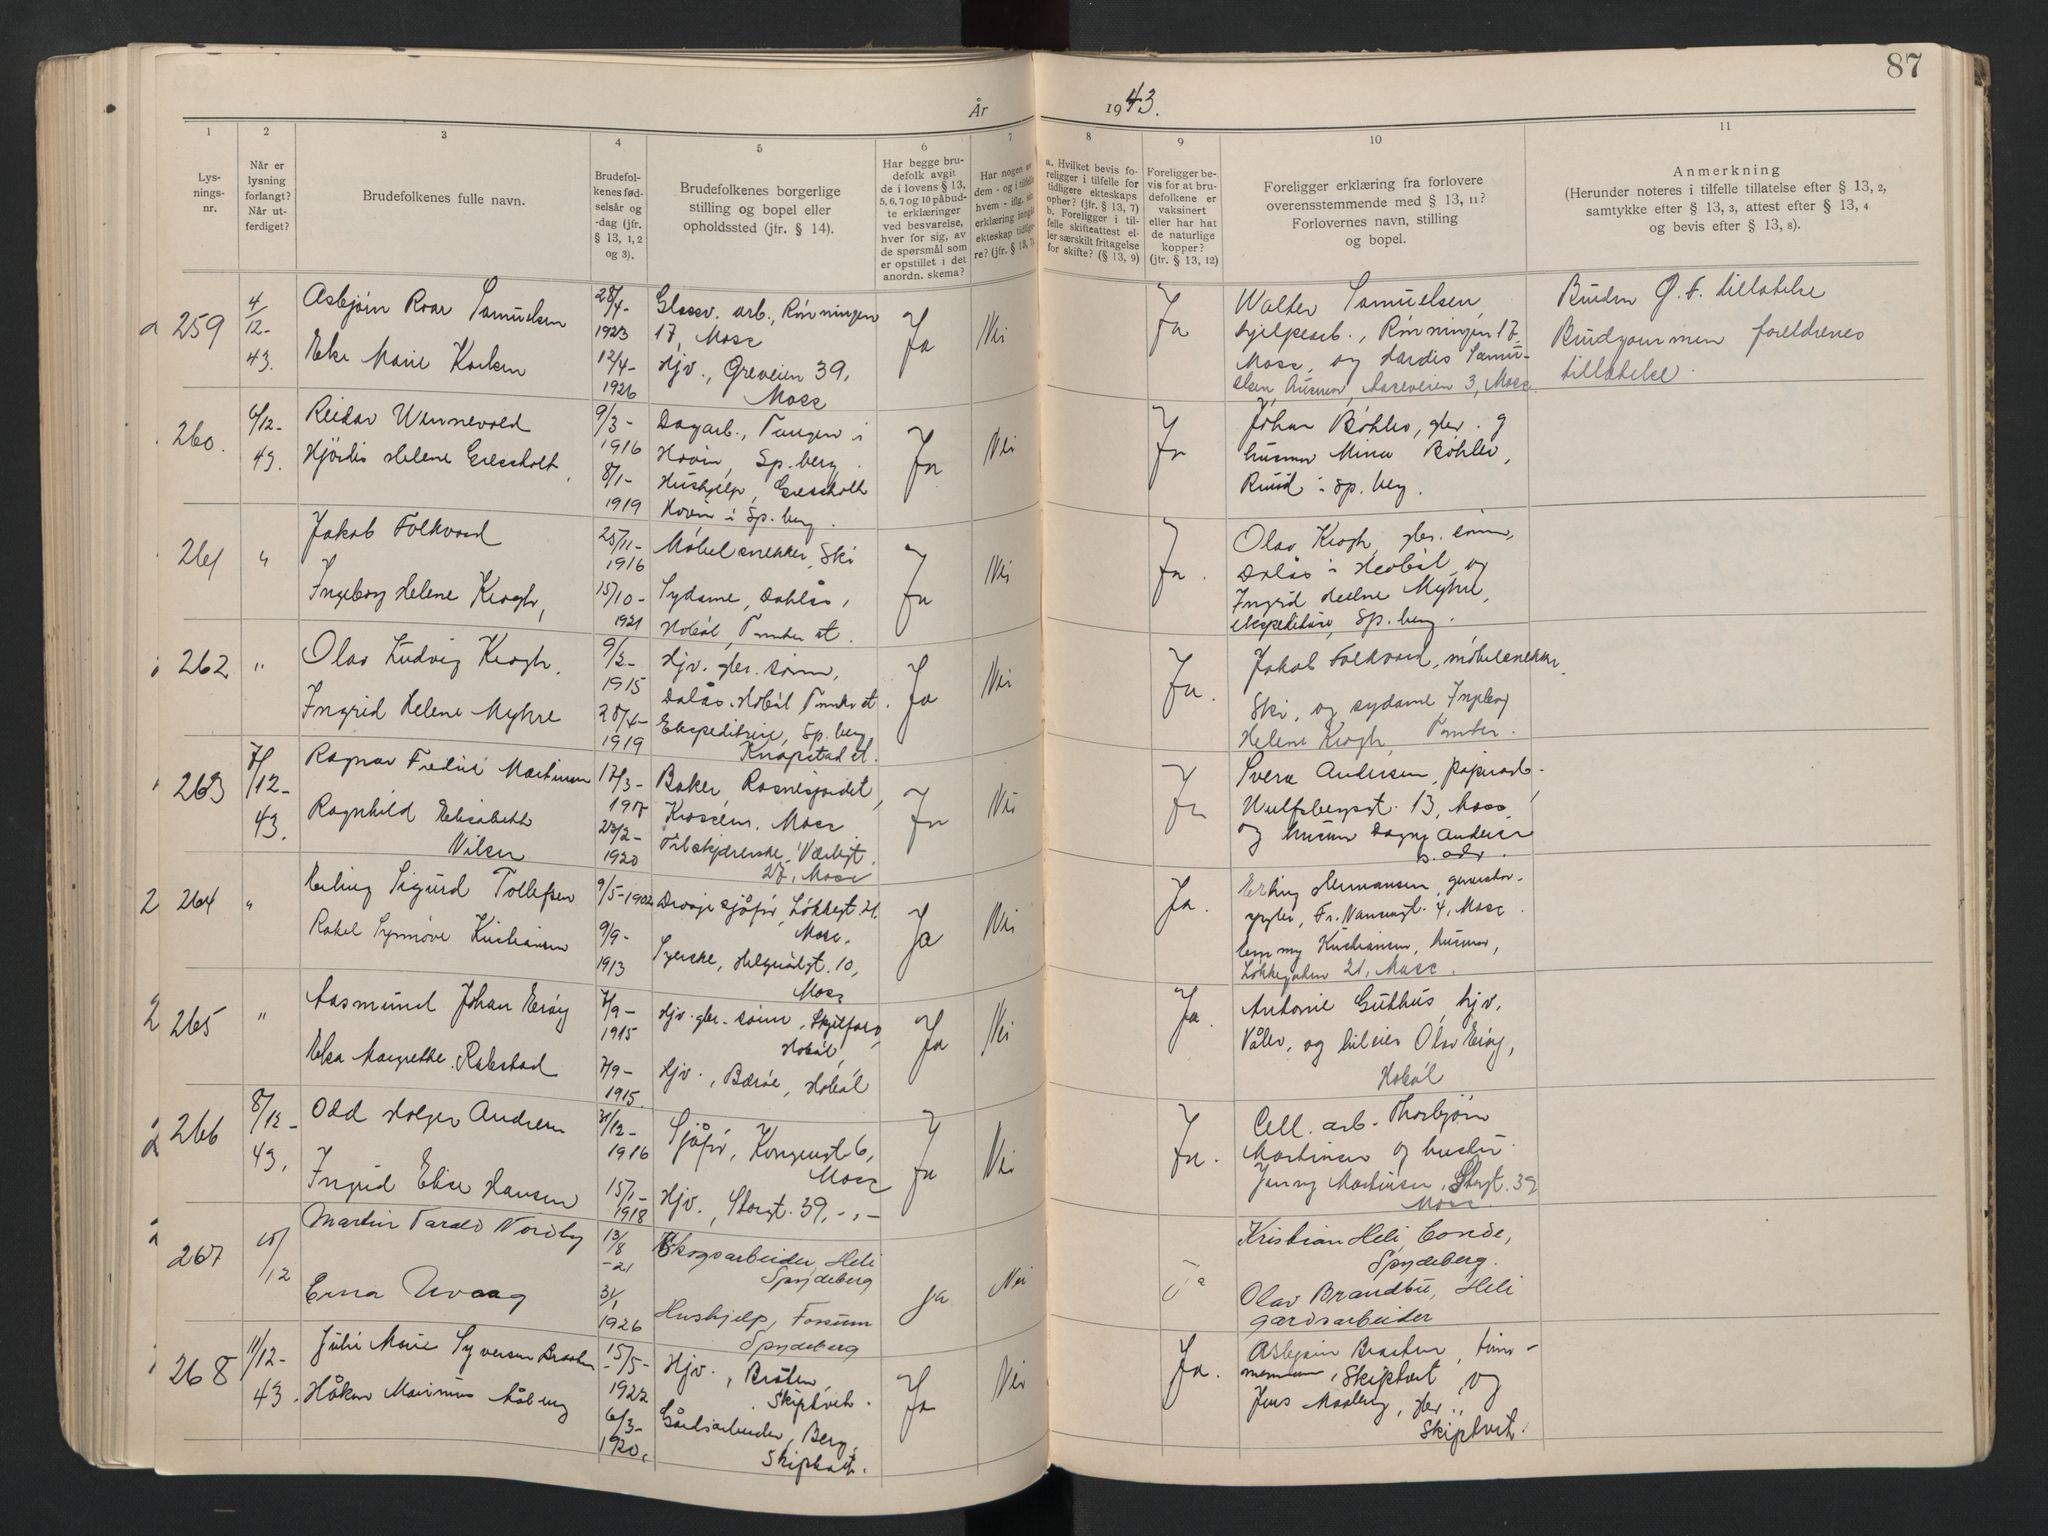 87
År 1943.
1
2
3
4
5
6
7
8
9
10
11
Lys-
nings-
nr.
Når er
lysning
forlangt?
Når ut-
ferdiget?
Brudefolkenes fulle navn.
Brudefol-
kenes fød-
selsår og
-dag (jfr.
§ 13, 1, 2
og 3).
Brudefolkenes borgerlige
stilling og bopel eller
opholdssted (jfr. § 14).
Har begge bru-
defolk avgit
de i lovens § 13,
5, 6, 7 og 10 påbud-
te erklæringer
ved besvarelse,
hver for sig, av
de spørsmål som
er opstillet i det
anordn. skema?
Har nogen av
dem - og i tilfelle
hvem - iflg. sin
erklæring inngått
ekteskap tidlige-
re? (jfr. § 13, 7).
a. Hvilket bevis fo-
religger i tilfelle for
tidligere ekteskaps
ophør? (jfr. § 13, 7)
b. Foreligger i til-
felle skifteattest el-
ler særskilt fritagelse
for skifte? (§ 13, 9)
Foreligger be-
vis for at bru-
defolkene er
vaksinert
eller har hat
de naturlige
kopper?
(jfr. § 13, 12)
Foreligger erklæring fra forlovere
overensstemmende med § 13, 11?
Forlovernes navn, stilling
og bopel.
Anmerkning
(Herunder noteres i tilfelle tillatelse efter § 13, 2,
samtykke efter § 13, 3, attest efter § 13, 4
og bevis efter § 13, 8).
259
4/
12-
43.
Asbjørn Roar Samuelsen
Else Marie Karlsen
28/4-
1923
12/4-
1926
Glassv. arb., Rønningen
17, Moss
Hjv., Greveien 39,
Moss
Ja
Nei
Ja
Walter Samuelsen
hjelpearb., Rønningen 17,
Moss, og Hardis Samu-
elsen, husmor, Aaseveien 3, Moss.
Bruden Ø. F. tillatelse
Brudgommen foreldrenes
tillatelse.
260.
6/12-
43.
Reidar Wennevold
Hjördis Helene Gresholt
9/3-
1916
8/1-
1919
Dagarb., Tangen i
Hovin, Sp.berg.
Hushjelp, Gresholt
Hovin i Sp.berg.
Ja
Nei
Ja
Johan Bøhler, gbr. g
husmor Mina Bøhler,
Ruud i Sp.berg.
261
"
Jakob Folkvord
Ingeborg Helene Krogh,
25/11-
1916
15/10-
1921
Møbelsnekker, Ski
Sydame, Dahlås,
Hobøl, Tomter st.
Ja
Nei
Ja.
Olav Krogh, gbr. sønn,
Dalås i Hobøl og
Ingrid Helene Myhre,
ekspeditrise, Sp.berg.
262
"
Olav Ludvig Krogh.
Ingrid Helene Myhre
9/2-
1915
28/4-
1919
Hjv. gbr. sønn,
Dalås, Hobøl Tomter st.
Ekspeditrise, Sp.berg
Knapstad st.
Ja
Nei
Ja.
Jakob Folkvord, møbelsnekker
Ski, og sydame Ingeborg
Helene Krogh, Tomter.
263
7/
12-
43.
Ragnar Fredrik Martinsen
Ragnhild Elisabeth
Nilsen
17/3-
23/2-
1920
Baker, Rosnesjordet,
Krossern. Moss
Tilskjærerske, Værlegt.
27, Moss
Ja
Nei
Ja
Sverre Andersen, papirarb.
Wulfsbergsgt. 13, Moss,
og husmor Dagny Andersen
s. adr.
264
"
Erling Sigurd Tollefsen
Rakel Synnøve Kristiansen
9/5-1902
9/9-
1913
Drosjesjåfør, Løkkegt. 21.
Moss.
Syerske, Helgerødgt. 10,
Moss
Ja
Nei
Ja.
Erling Hermansen, generator-
fyrbøter, Fr. Nansensgt. 4, Moss.
Kristiansen, husmor,
Løkkegaten 21, Moss.
265
"
Aasmund Johan Erøy
Elsa Margrethe Rabstad
7/9-
1915
7/9-
1915.
Hjv. gbr. sønn, Skjelfoss,
Hobøl,
Hjv., Bærøe, Hobøl
Ja
Nei
Ja.
Antonie Guthus, hjv,
Våler, og bileier Olav Erøy,
Hobøl
266
8/12-
43.
Odd Holger Andresen
Ingrid Elise Hansen
31/12-
1916
15/1-
1918
Sjåfør, Kongensgt. 6,
Moss
Hjv., Storgt. 39, -"-
Ja
Nei
Ja.
Cell. arb. Thorbjørn
Martinsen og hustru
Jenny Martinsen, Storgt. 39
Moss.
267
10/
12
Martin Harald Nordby
Erna Kvaag
13/
8
-21
31/
1
1926
Skogsarbeider, Heli
Spydeberg
Hushjelp, Forsum
Spydeberg
Ja
Nei
Ja
Kristian Heli, Bonde,
Spydeberg.
Olav Brandbu, Heli
gårdsarbeider
268
11/12-
43.
Juli Marie Syversen Braaten
Håkon Marinius Måberg
15/5-
1922
6/3-
1920.
Hjv., Bråten,
Skiptvet.
Gårdsarbeider, Berg,
Skiptvet.
Ja
Nei
Ja.
Asbjørn Braaten, tøm-
mermann, Skiptvet, og
Jens Maaberg, gbr.,
Skiptvet.